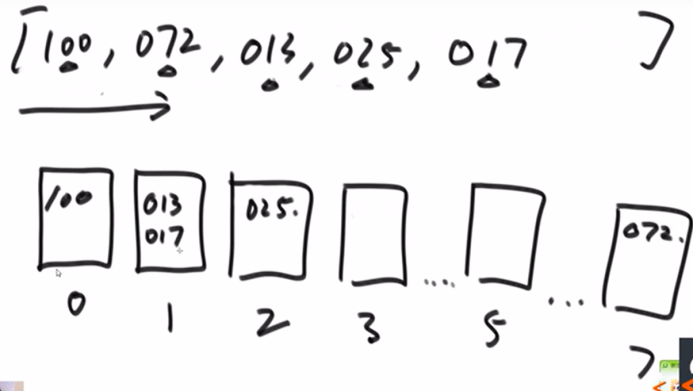 [100, 072, 013, 025, 017 ]
100 013 025. 072.
017
0 1 2 3 .... 5 ... 7